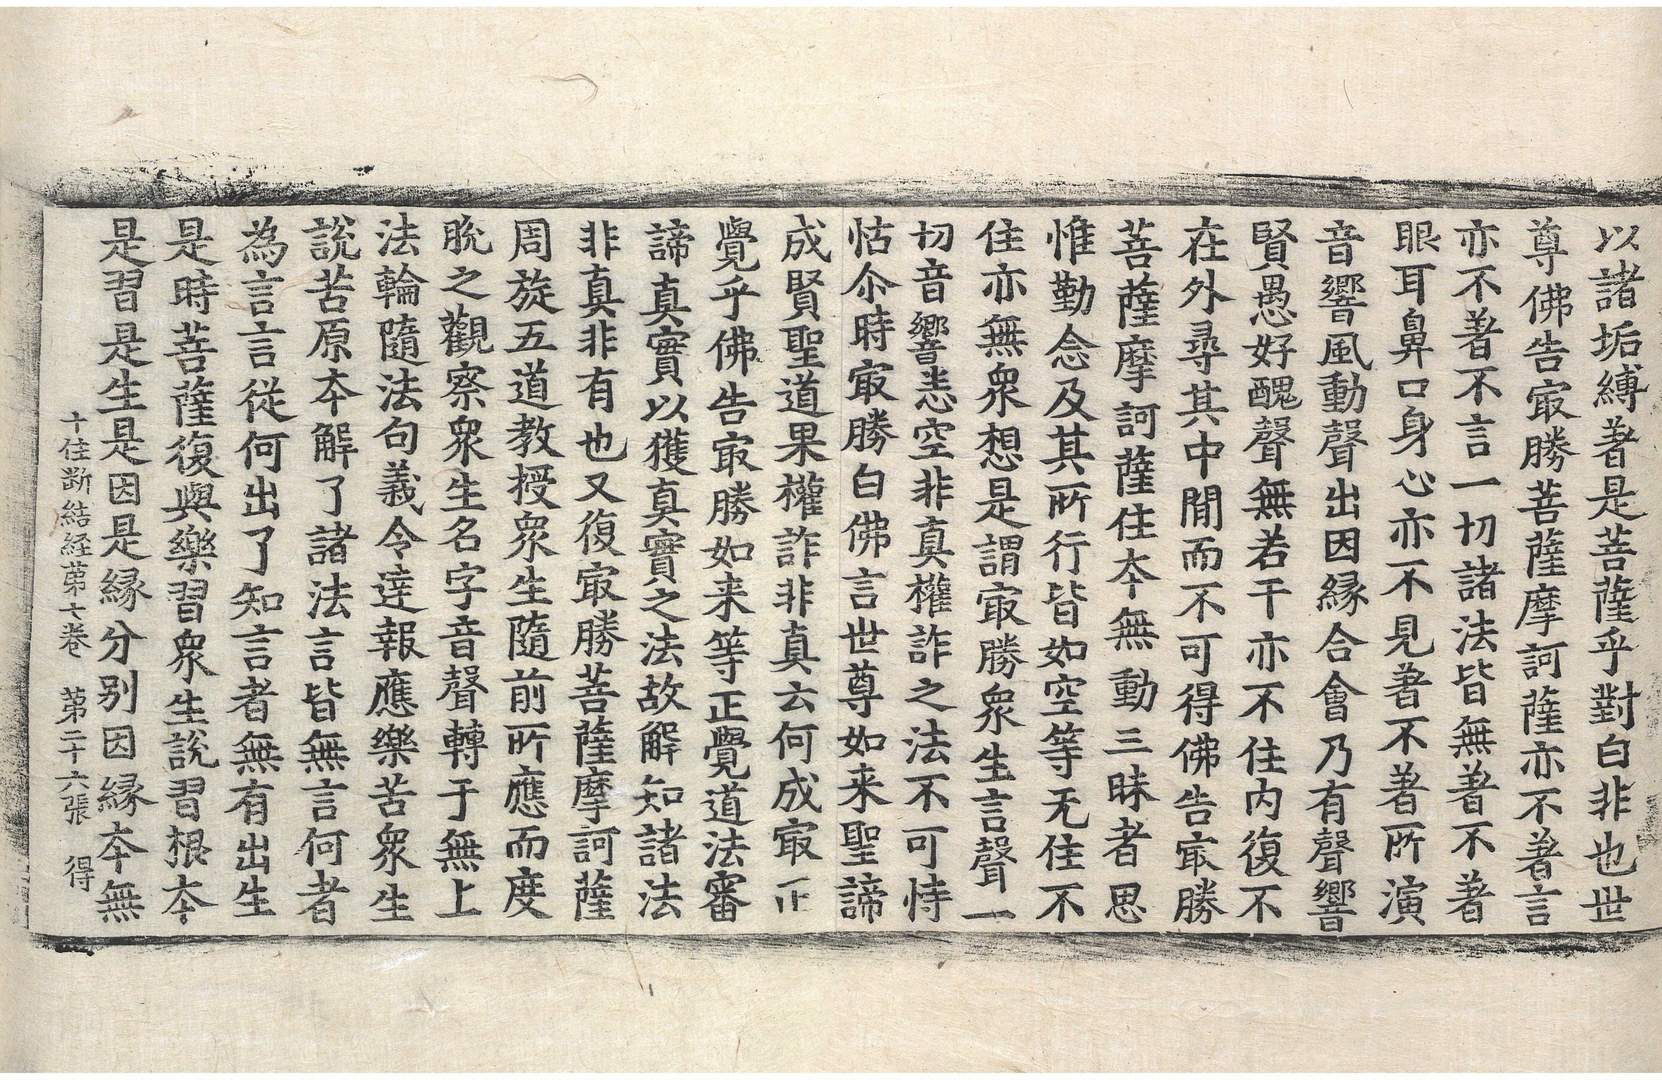 以諸垢縛著是菩薩乎對白非也世
尊佛告㝡勝菩薩摩訶薩亦不著言
亦不著不言一切諸法皆無著不著
眼耳鼻口身心亦不見著不著所演
音響風動聲出因緣合會乃有聲響
賢愚好醜聲無若干亦不住內復不
在外尋其中間而不可得佛告㝡勝
菩薩摩訶薩住夲無動三昧者思
惟勤念及其所行皆如空等无住不
住亦無眾想是謂㝡勝眾生言聲一
切音響悉空非真權詐之法不可恃
怙尒時㝡勝白佛言世尊如来聖諦
成賢聖道果權詐非真云何成㝡正
覺乎佛告㝡勝如来等正覺道法審
諦真實以獲真實之法故解知諸法
非真非有也又復㝡勝菩薩摩訶薩
周旋五道教授眾生隨前所應而度
脫之觀察眾生名字音聲轉于無上
法輪隨法句義令達報應樂苦眾生
說苦原夲解了諸法言皆無言何者
為言言從何出了知言者無有出生
是時菩薩復與樂習眾生說習根夲
是習是生是因是緣分別因緣夲無
十住斷結経苐七巻　苐二十六張　得